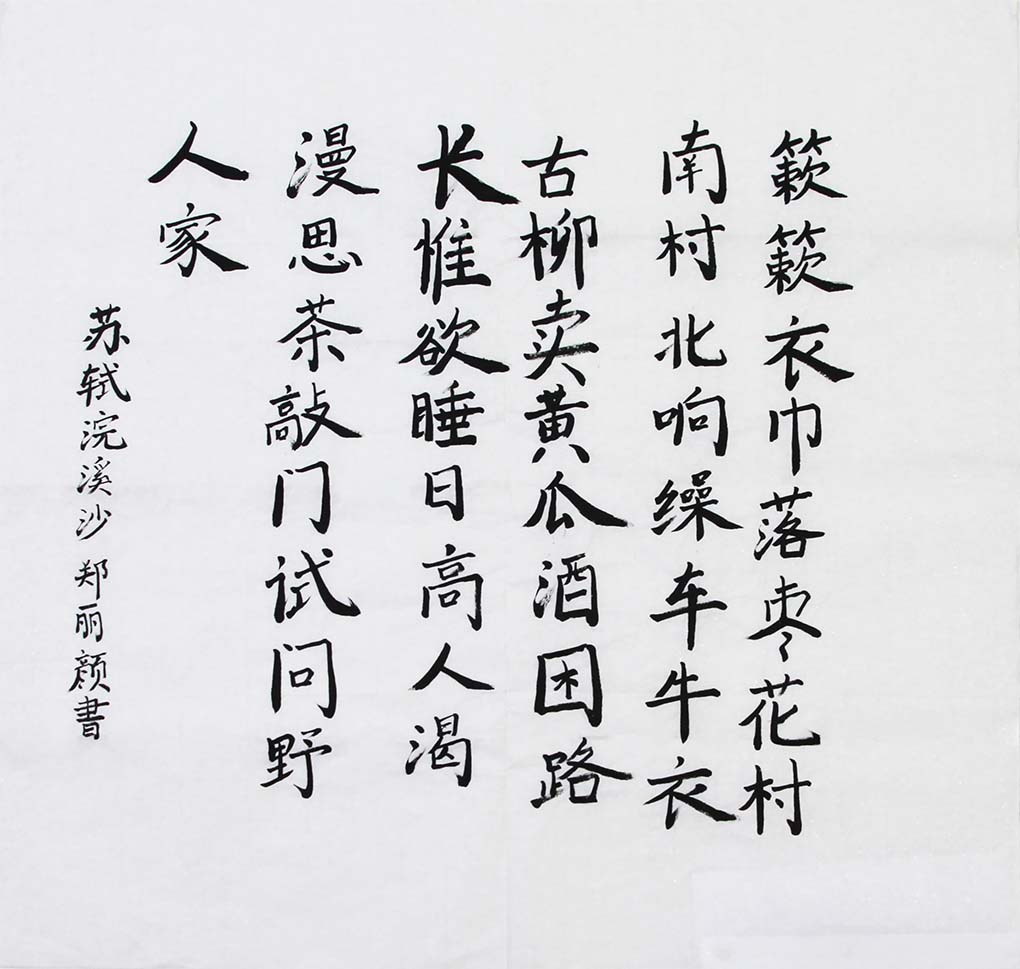 簌簌衣巾落枣花村
南村北响缲车牛衣
古柳卖黄瓜酒困路
长惟欲睡日高人渴
漫思茶敲门试问野
人家
苏轼浣溪沙 郑丽颜書